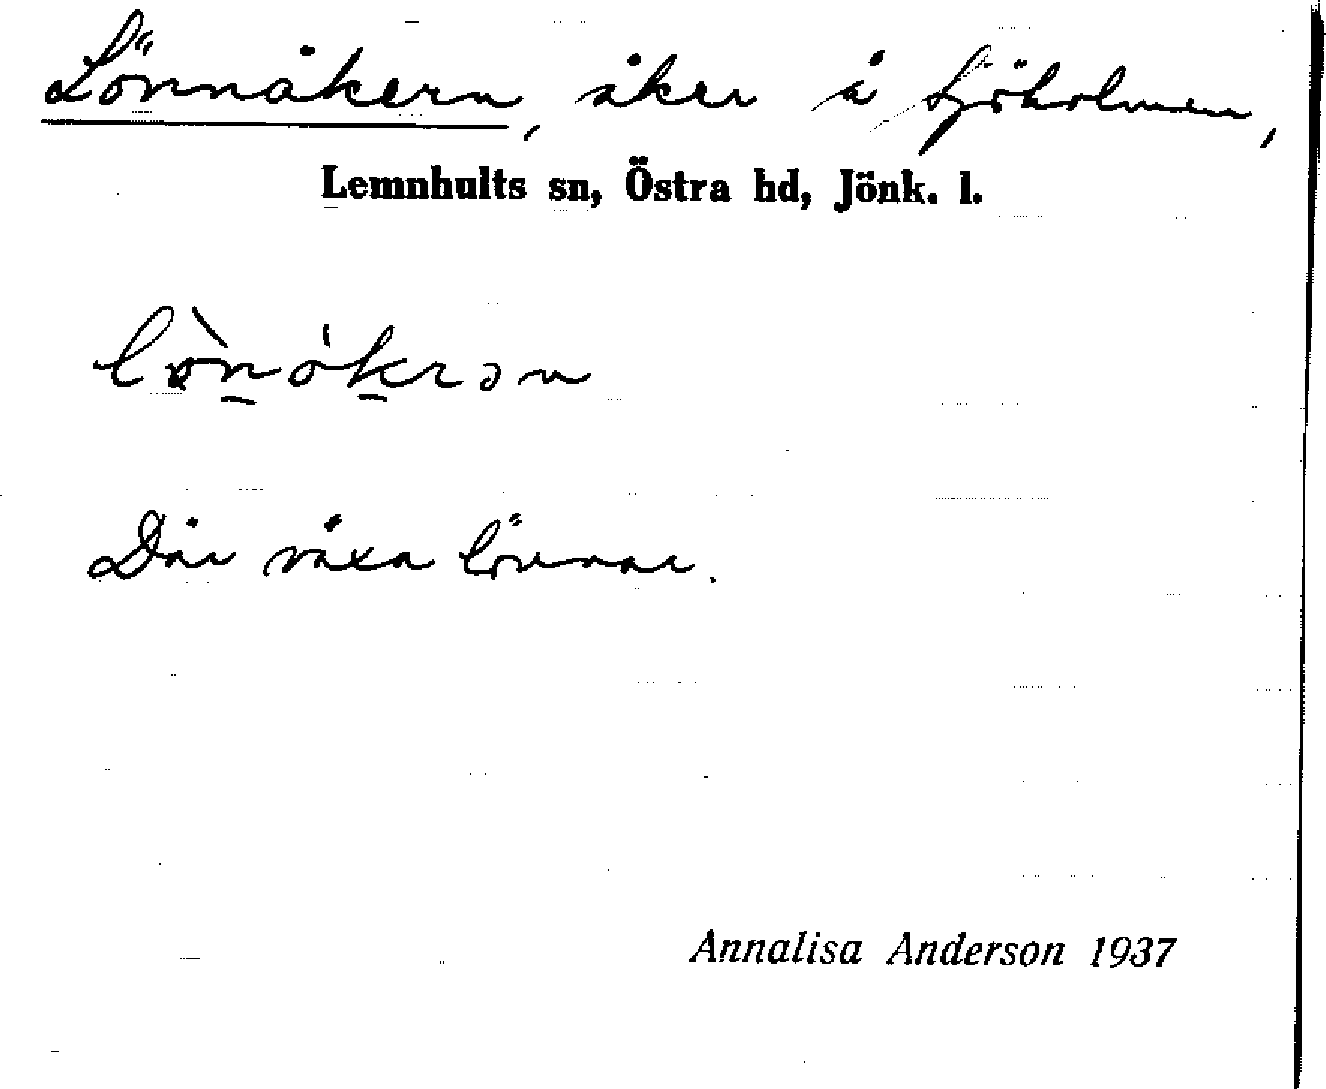 Lönnåkern, åker å Sjöholmen,
Lemnhults sn, Östra hd, Jönk. l.
Där växa lönnar.
Annalisa Anderson 1937